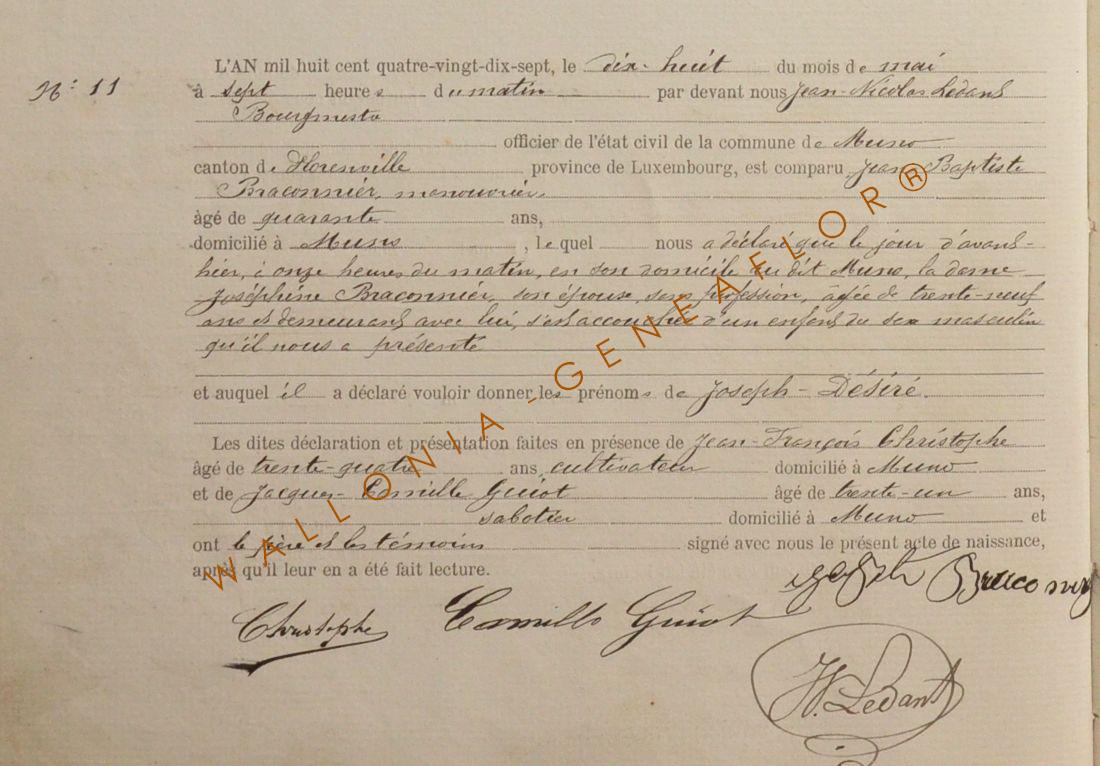 N° 11
L'AN mil huit cent quatre-vingt-dix-sept, le dix-huit du mois de mai
à sept heures du matin par devant nous Jean-Nicolas Ledant
Bourgmestre
officier de l'état civil de la commune de Muno
canton de Florenville province de Luxembourg, est comparu Jean Baptiste
Braconnier, manouvrier,
âgé de quarante ans,
domicilié à Muno, lequel nous a déclaré que le jour d'avant-
hier, à onze heures du matin, en son domicile au dit Muno, la dame
Joséphine Braconnier, son épouse, sans profession, âgée de trente-neuf
ans et demeurant avec lui, s'est accouchée d'un enfant du sexe masculin
qu'il nous a présenté
et auquel il a déclaré vouloir donner les prénoms de Joseph-Désiré.
Les dites déclaration et présentation faites en présence de Jean-François Christophe
âgé de trente-quatre ans, cultivateur domicilié à Muno
et de Jacques-Camille Guiot âgé de trente-un ans,
sabotier domicilié à Muno et
ont le père et les témoins signé avec nous le présent acte de naissance,
après qu'il leur en a été fait lecture.
Braconnier
Christophe Camille Guiot
N. Ledant
WALLONIA-GENEAFLOR®